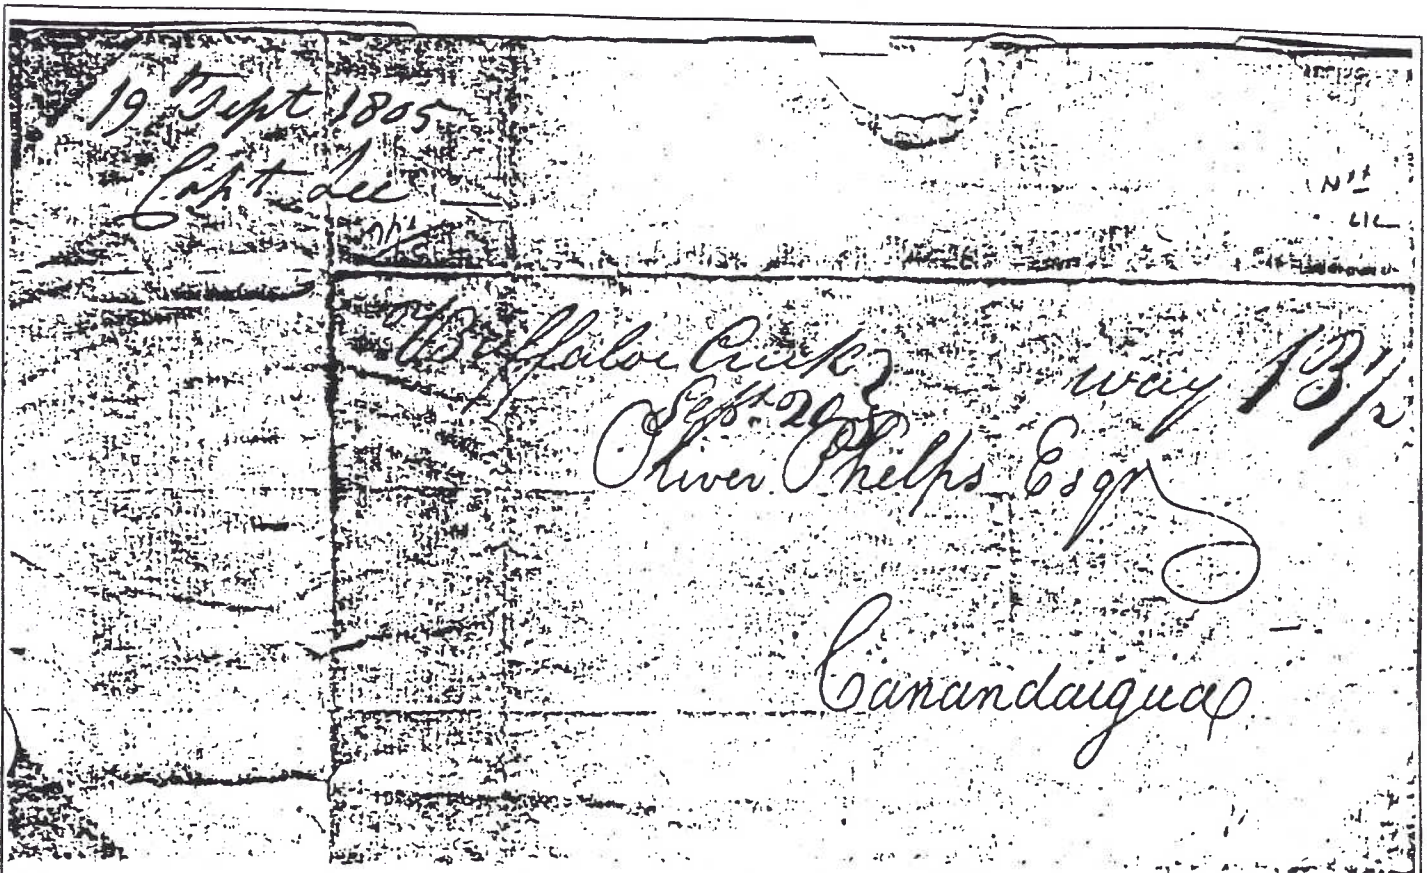 19th Sept 1805
Capt Lee
Buffaloe Creek
Sept. 20
way 13 1/2
Oliver Phelps Esqr
Canandaigua